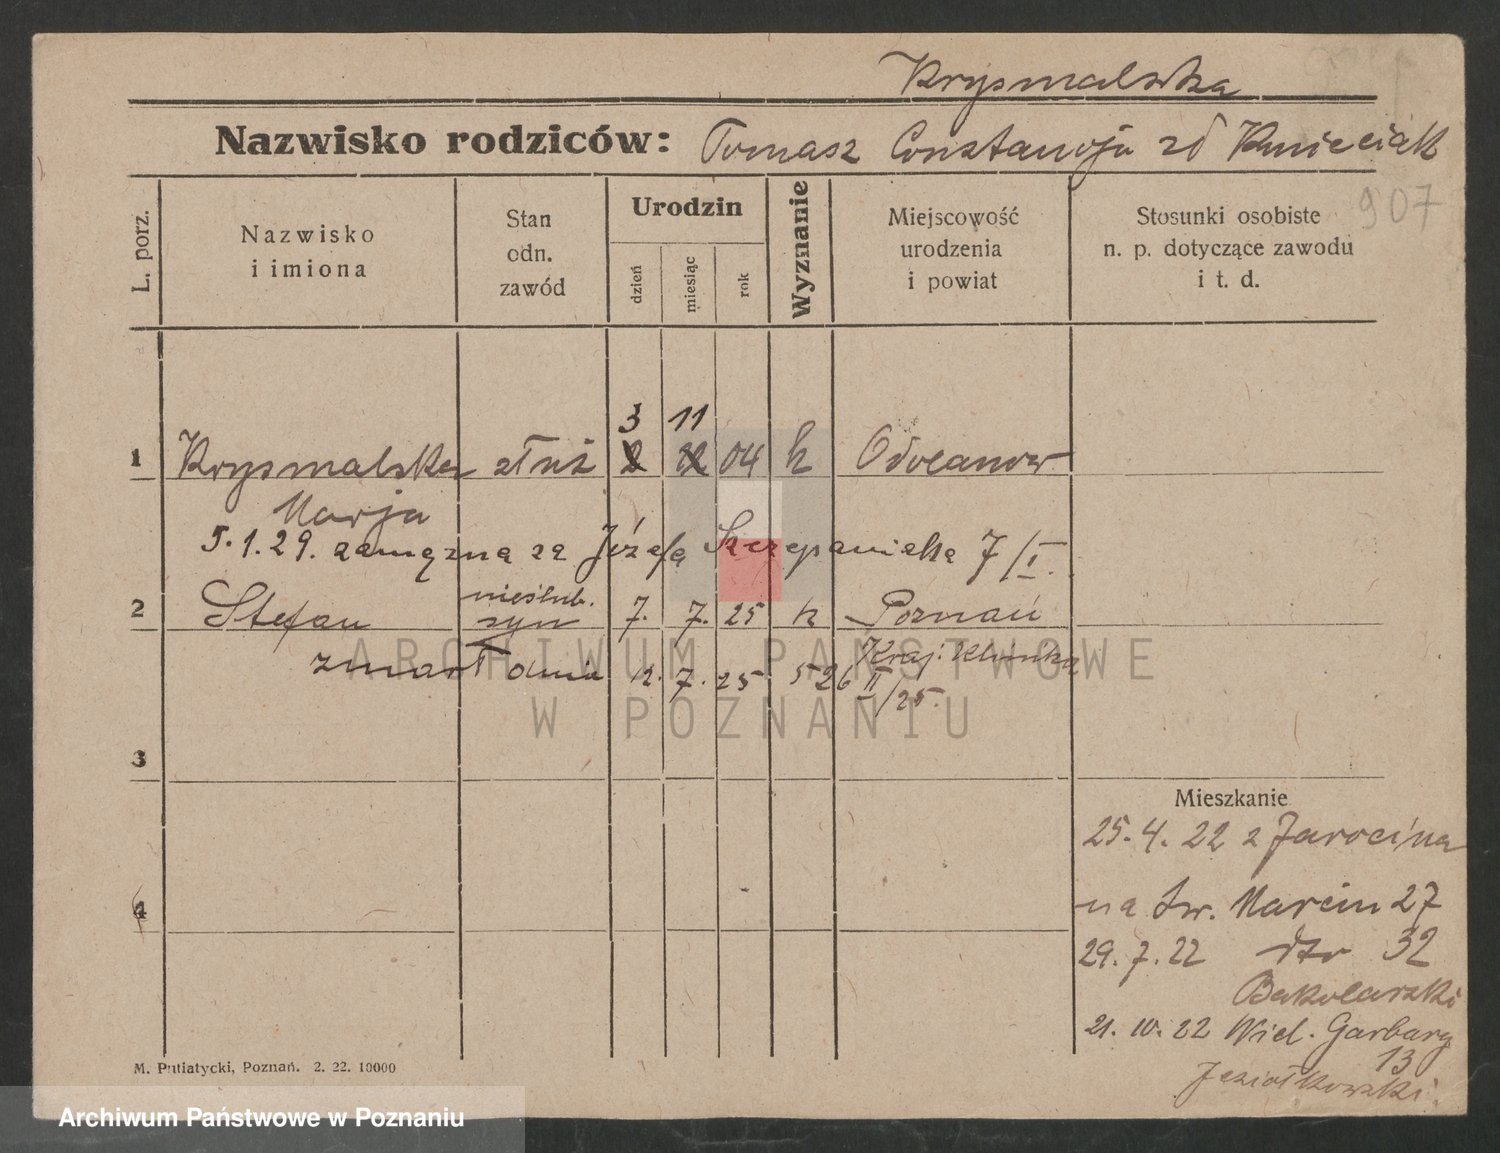 Krysmalska
Nazwisko rodziców: Tomasz Constancja zd Kmieciak
907
L. porz.
Nazwisko
i imiona
Stan
odn.
zawód
Urodzin
dzień
miesiąc
rok
Wyznanie
Miejscowość
urodzenia
i powiat
Stosunki osobiste
n. p. dotyczące zawodu
i t. d.
3 11
1 Krysmalska służ 2 12 04 k Odolanow
Marja
5.1.29. zamężna za Józefa Szczepaniaka 7/I.
nieślub.
2 Stefan syn 7. 7. 25 k Poznań
zmarł dnia 12. 7. 25 526 II/25.
Kraj. Klinika
3
4
Mieszkanie
25.4.22 z Jarocina
na Św. Marcin 27
29.7.22 dto 32
Bakolarski
21.10.22 Wiel. Garbary
13
Jeziołkowski.
M. Putiatycki, Poznań. 2. 22. 10000
ARCHIWUM PAŃSTWOWE
W POZNANIU
Archiwum Państwowe w Poznaniu